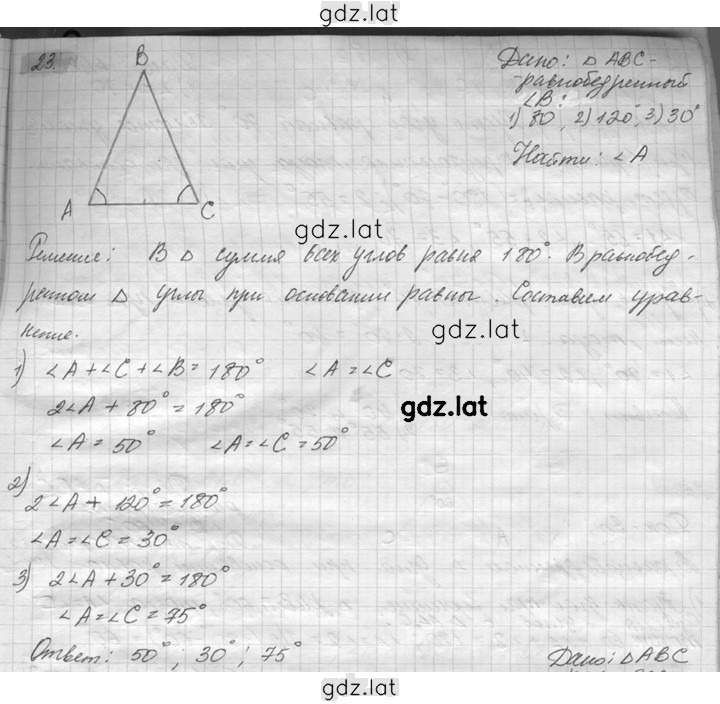 gdz.lat
23.
B
A
C
Дано: △ ABC-
-равнобедренный
∠B:
1) 80°, 2) 120°, 3) 30°
Найти: ∠A
gdz.lat
Решение: В △ сумма всех углов равна 180°. В равнобед-
ренном △ углы при основании равны. Составим урав-
нение.
gdz.lat
1) ∠A+∠C+∠B=180° ∠A=∠C
2∠A + 80°=180°
gdz.lat
∠A = 50° ∠A=∠C=50°
2)
2∠A + 120°=180°
∠A=∠C = 30°
3) 2∠A+30°=180°
∠A=∠C=75°
Ответ: 50°; 30°; 75°
Дано: △ABC
gdz.lat